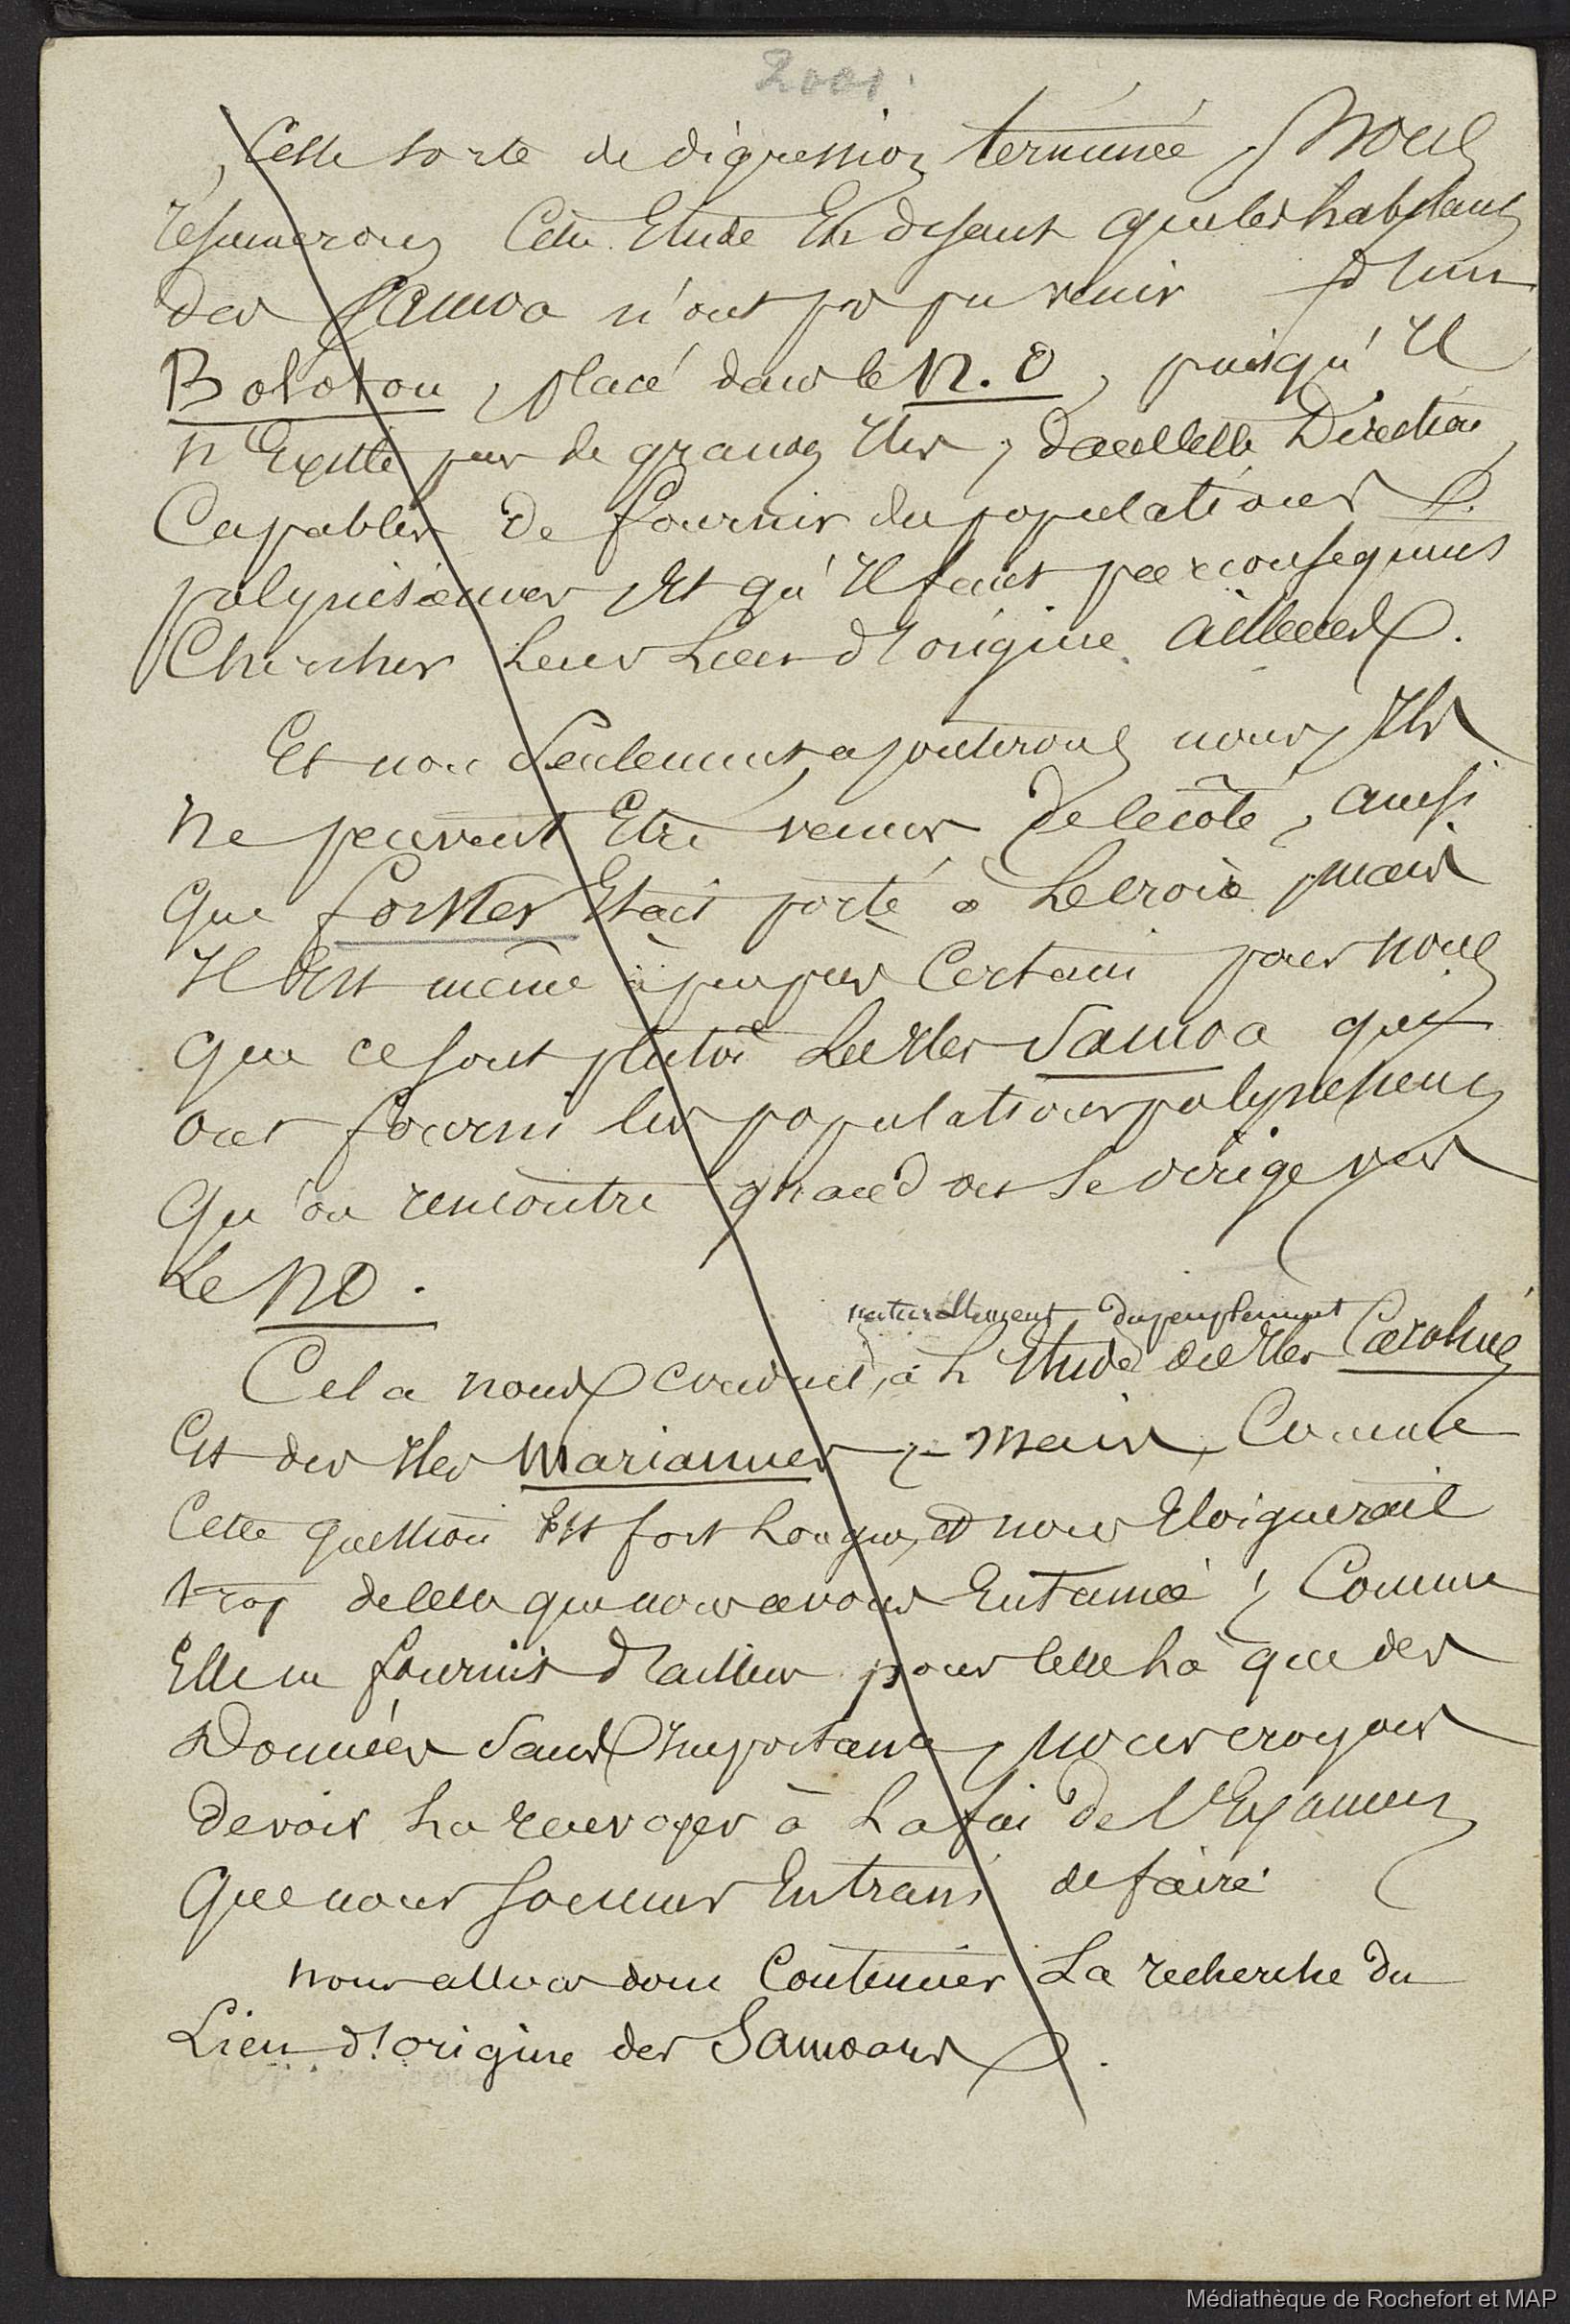 2001.
Cette sorte de digression terminée, nous
résumerons cette Etude En disant que les habitans
des Samoa n'ont pas pu venir d'un
Bolotou, placé dans le N. O, puisqu'Il
n'Existe pas de grandes Iles, dans cette Direction,
Capables de fournir des populations
polynésiennes, Et qu'Il faut par conséquent
Chercher Leur Lieu d'origine ailleurs.
Et non Seulement, ajouterons nous, Ils
ne peuvent Etre venus de ce côté, ainsi
que Forster Etait porté à Le croire, mais
Il Est même à peu près Certain pour nous
que ce sont plutôt Les Iles Samoa qui
ont fourni les populations polynésiennes
Qu'on rencontre quand on se dirige vers
Le NO.
naturellement du peuplement
Cela nous conduit, à L'Etude des Iles Carolines
Et des Iles Mariannes ; - mais, Comme
Cette question Est fort Longue, et nous Eloignerait
trop de celle que nous avons Entamée ; Comme
Elle ne fournit d'ailleurs pour celle là que des
Données Sans Importance, nous croyons
devoir La renvoyer à La fin de l'Examen
Que nous sommes En train de faire.
nous allons donc Continuer La recherche du
Lieu d'origine des Samoans.
Médiathèque de Rochefort et MAP